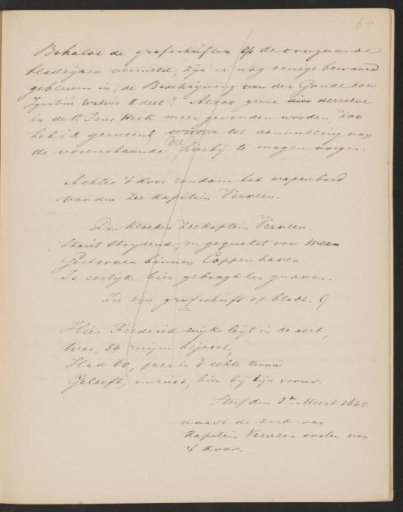 65
Behalve de grafschriften op de voorgaande
bladzijden vermeld, zijn er nog eenige bewaard
gebleven in de Beschrijving van der Goude door
Ignatius Walvis II deel. Alzoo geene dezelve
in de St Jans Kerk meer gevonden worden, zoo
heb ik gemeend, ter aanvulling van
de voorenstaande hierbij te mogen voegen.
Achter 't koor rondom het wapenbord
van den Zee kapitein Verveen.
Den kloeken Zeekaptein Verveen,
Stout strydend, en gequetst voor
Gestorven binnen Coppenhaven
Is eerlijk hier gebragt en graven.
Zie zijn grafschrift op bladz. 9
Hier Frederik leyt in de aert,
Was, 84 bejaert,
Had 60, jaer in d' echte trouw
Geleeft, en rust, hier by zijn vrouw.
Sterf den 2n Meert 1640
naast de zerk van
Kapitein Verveen voorlen van
't koor.